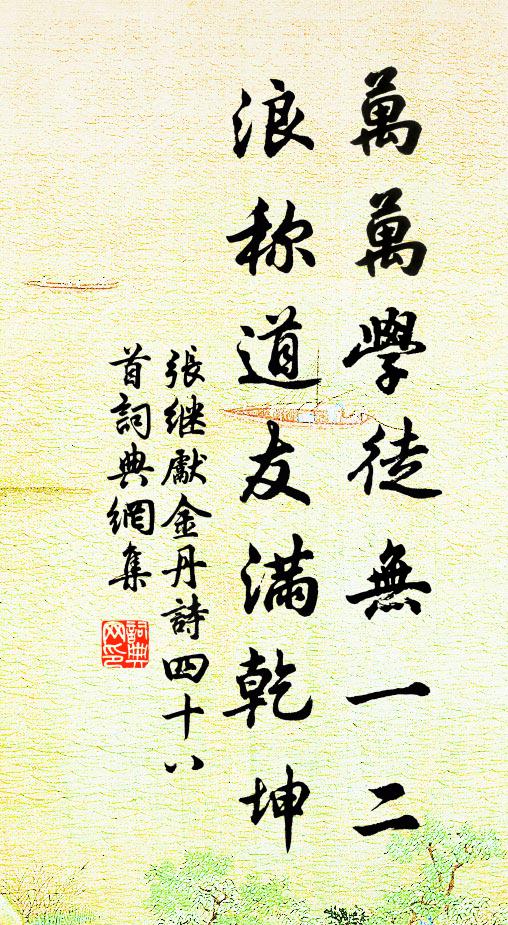 萬萬學徒無一二
浪称道友满乾坤
張继獻金丹詩四十八
首詞典網集
詞典网印